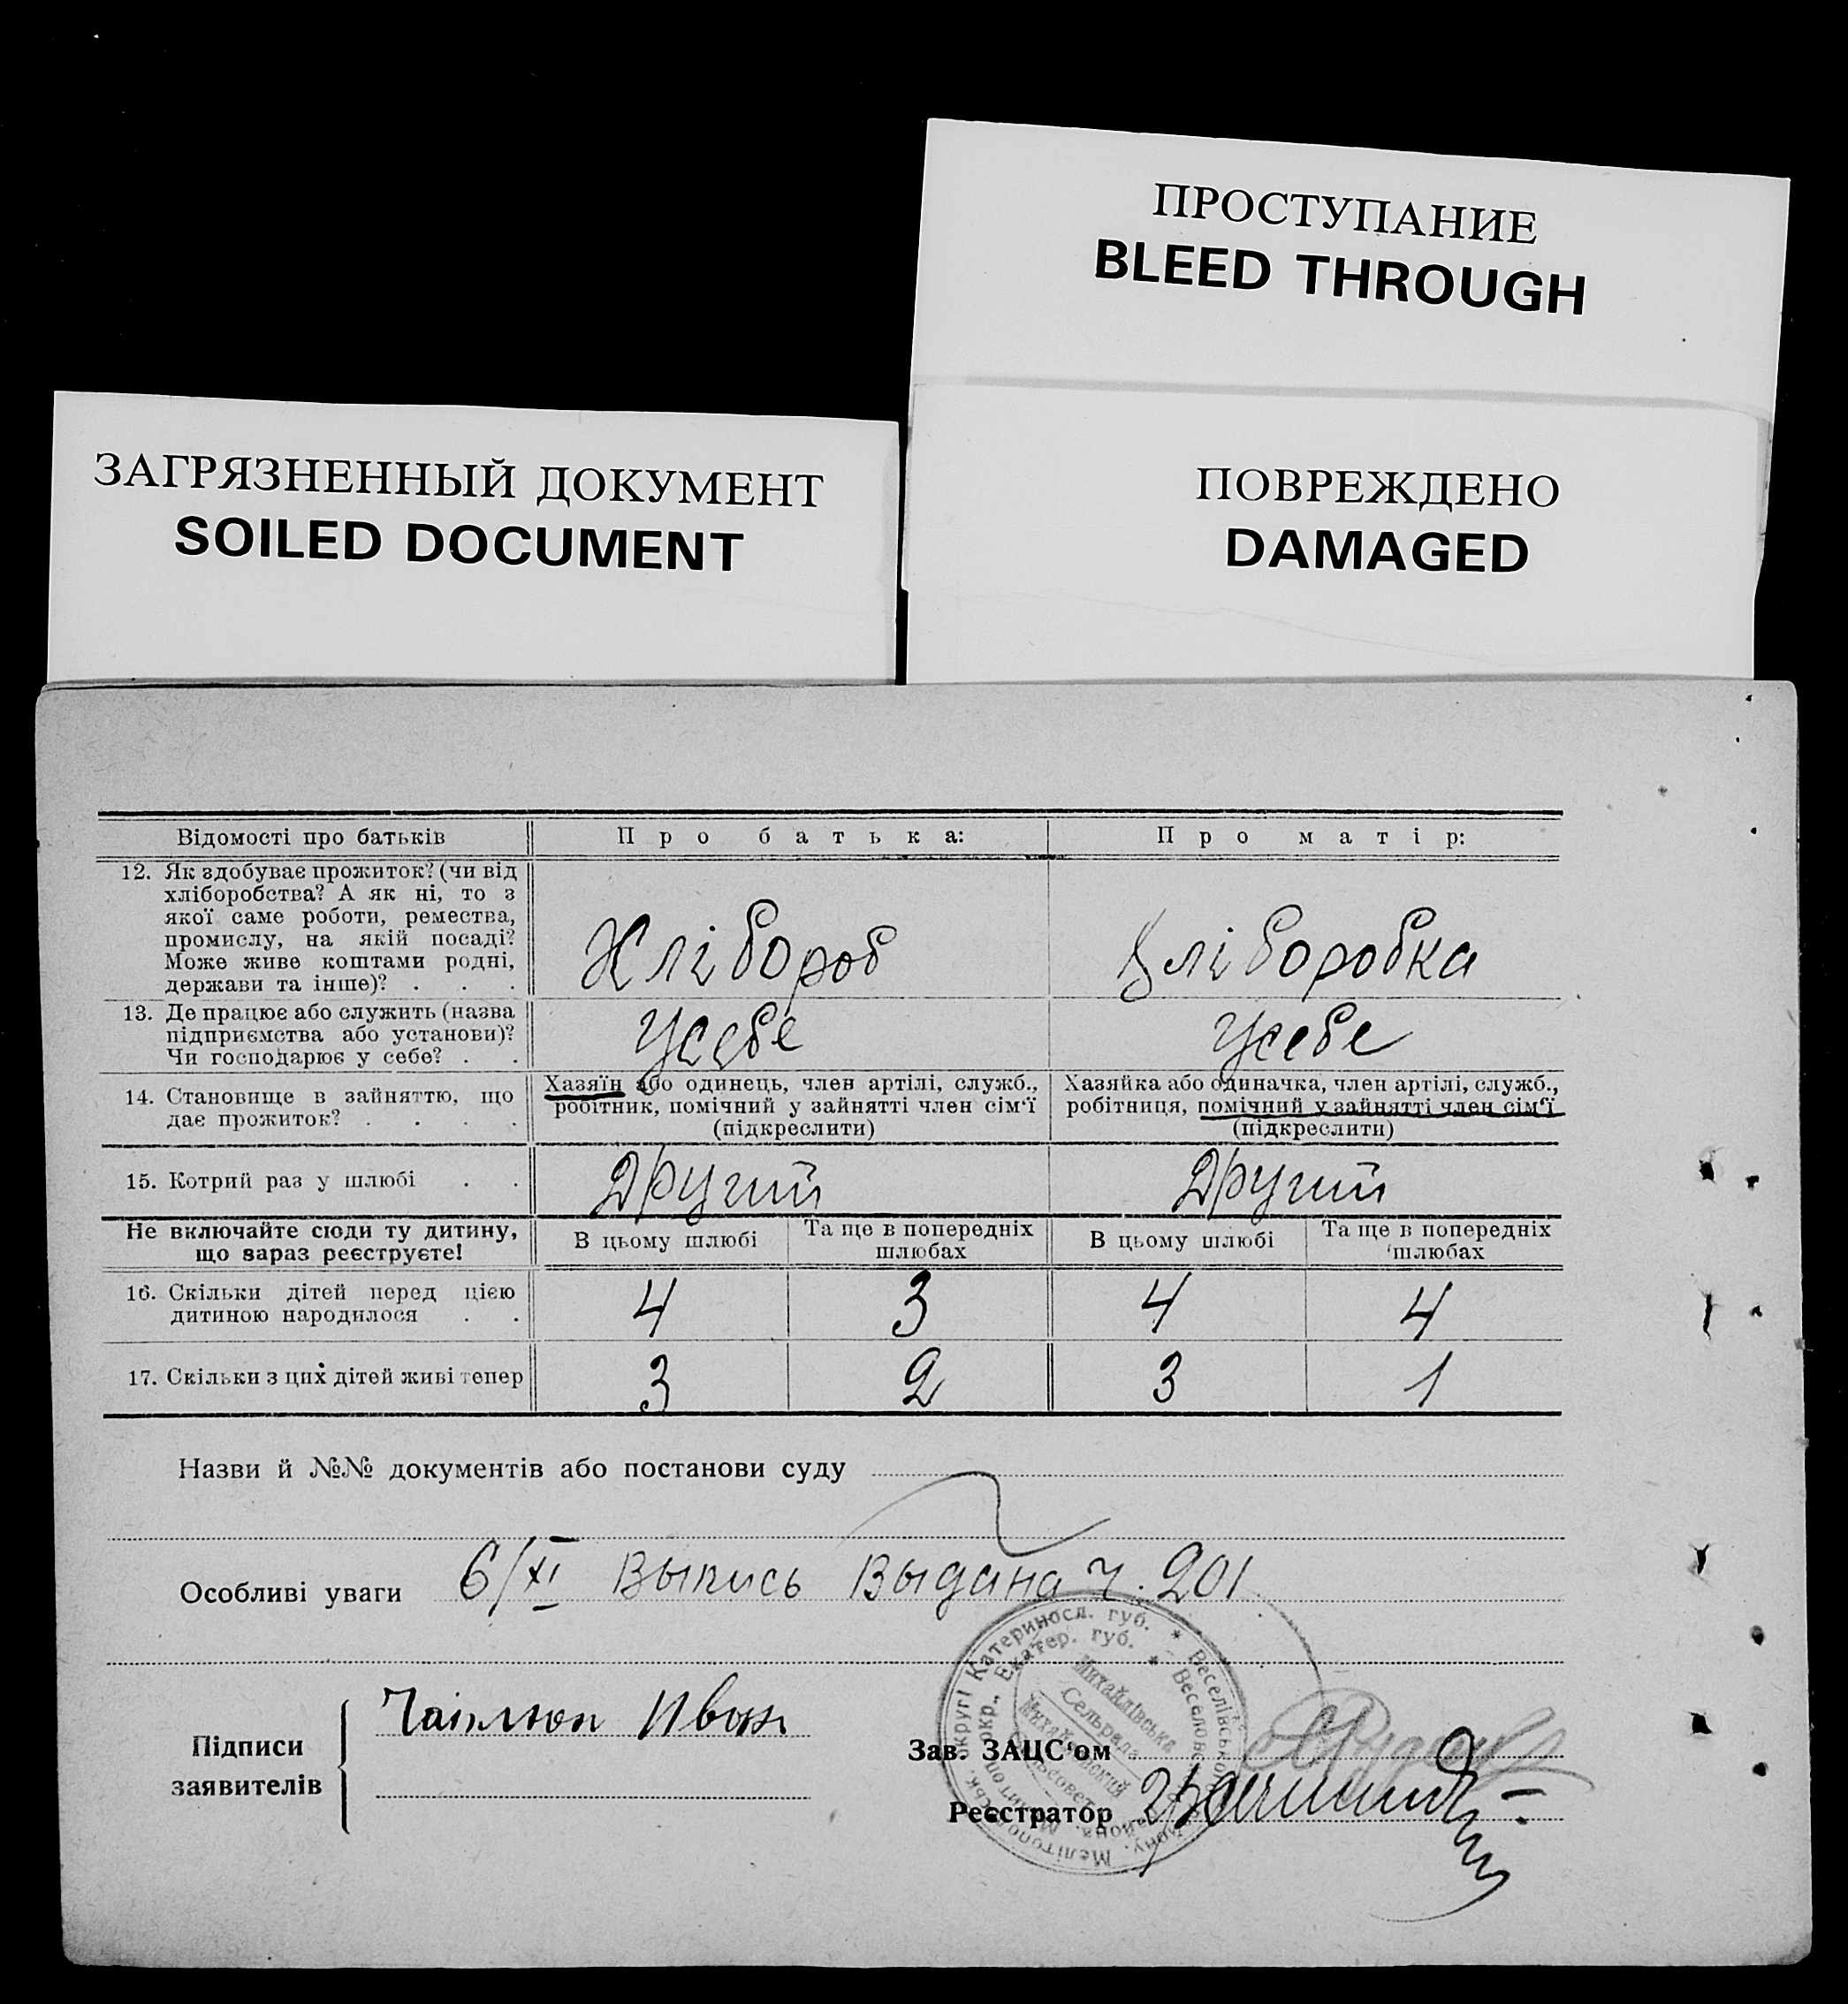 ПРОСТУПАНИЕ
BLEED THROUGH
ЗАГРЯЗНЕННЫЙ ДОКУМЕНТ
SOILED DOCUMENT
ПОВРЕЖДЕНО
DAMAGED
Відомості про батьків Про батька: Про матір:
12. Як здобуває прожиток? (чи від
хліборобства? А як ні, то з
якої саме роботи, ремества,
промислу, на якій посаді?
Може живе коштами родні,
держави та інше)? . . .
Хлібороб Хліборобка
13. Де працює або служить (назва
підприємства або установи)?
Чи господарює у себе? . .
Усебе Усебе
14. Становище в зайняттю, що
дає прожиток? . . . .
Хазяїн або одинець, член артілі, служб.,
робітник, помічний у зайнятті член сім'ї
(підкреслити)
Хазяйка або одиначка, член артілі, служб.,
робітниця, помічний у зайнятті член сім'ї
(підкреслити)
15. Котрий раз у шлюбі . . Другий Другий
Не включайте сюди ту дитину,
що зараз реєструєте!
В цьому шлюбі Та ще в попередніх
шлюбах
В цьому шлюбі Та ще в попередніх
шлюбах
16. Скільки дітей перед цією
дитиною народилося . .
4 3 4 4
17. Скільки з цих дітей живі тепер 3 2 3 1
Назви й №№ документів або постанови суду
Особливі уваги 6/XI Выпись Выдана ч. 201
Підписи
заявителів
Иван
Зав. ЗАЦС'ом
Реєстратор
Мелітопольськ. округі Катериносл. губ. * Веселівськ
окр., Екатер. губ. * Веселовс
Михайлівська
Сельрада
Михайловский
Сельсовет